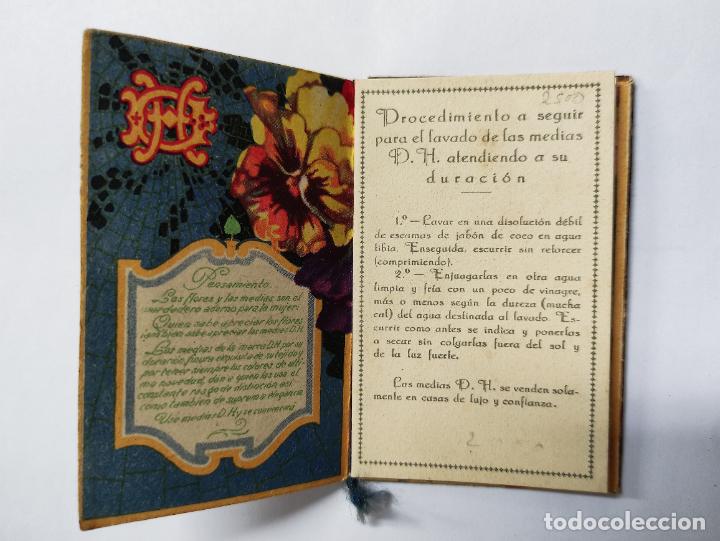 DH
Pensamiento.
Las flores y las medias son el
verdadero adorno para la mujer.
Quien sabe apreciar las flores
también sabe apreciar las medias D.H.
Las medias de la marca D.H. por su
duración, finura exquisita de su tejido y
por tener siempre los colores de últi-
ma novedad, dan a quien las usa el
constante rasgo de distinción, así
como también de suprema elegancia
Use medias D.H y se convencerá
2500
Procedimiento a seguir
para el lavado de las medias
D. H. atendiendo a su
duración
1.º — Lavar en una disolución débil
de escamas de jabón de coco en agua
tibia. Enseguida, escurrir sin retorcer
(comprimiendo).
2.º — Enjuagarlas en otra agua
limpia y fría con un poco de vinagre,
más o menos según la dureza (mucha
cal) del agua destinada al lavado. Es-
currir como antes se indica y ponerlas
a secar sin colgarlas fuera del sol y
de la luz fuerte.
Las medias D. H. se venden sola-
mente en casas de lujo y confianza.
todocoleccion.net